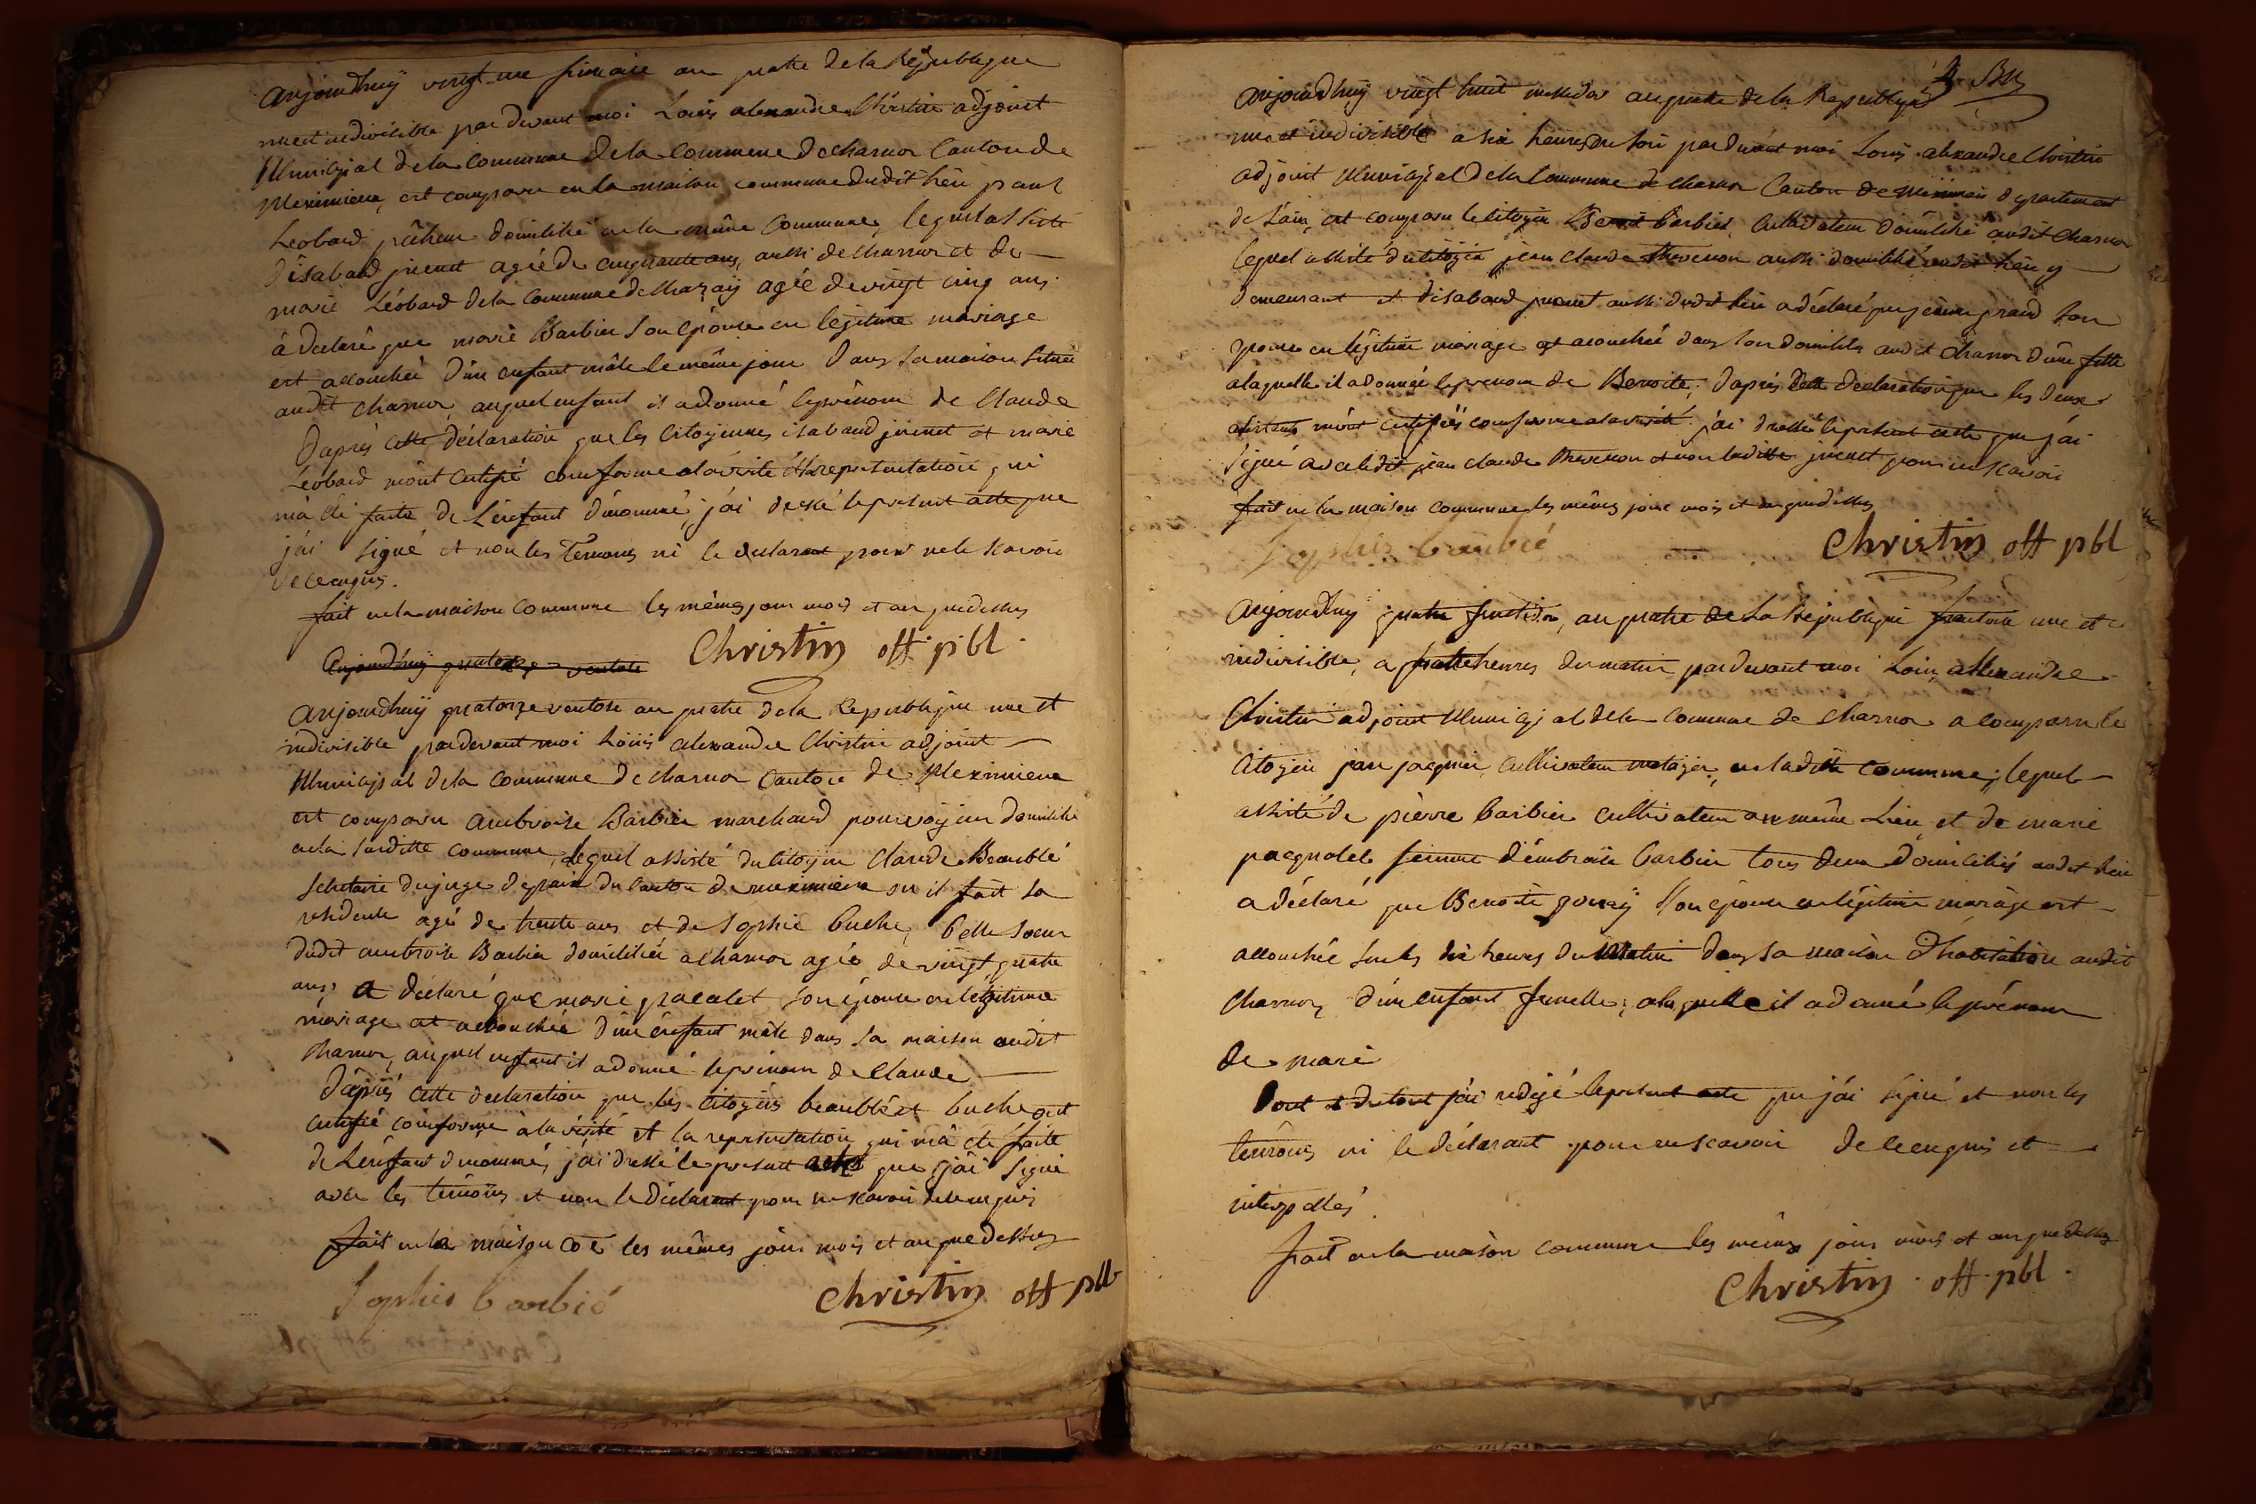 aujourdhuy vingt une frimaire an quatre de la Republique
une et indivisible par devant moi Louis alexandre Christin adjoint
Municipal de la Commune de la Commune de charnoz Canton de
Meximieux, est comparu en la maison commune dudit lieu paul
Léobard pêcheur domicilié en la même Commune, lequel assisté
disabaud juenet agée de cinquante ans, aussi de charnoz et de
marie Léobard de la Commune de chazaÿ agée de vingt cinq ans
à declaré que marie Barbier son épouse en légitime mariage
est accouchée d'un enfant mâle le même jour dans sa maison située
audit charnoz, auquel enfant il a donné le prénom de Claude
D'aprés cette déclaration que les Citoyennes isabaud juenet et marie
Léobard m'ont certifié conforme a la verité et la representation qui
m'a été faite de L'enfant dénommé, j'ai dressé le present acte que
j'ai signé et non les Témoins ni le declarant pour ne le scavoir
de ce enquis.
fait en la maison commune les mêmes jour mois et an que dessus
Christin off. pbl.
Aujourdhuy quatorze ventose
aujourdhuÿ quatorze ventose an quatre de la Republique une et
indivisible par devant moi Louis alexandre Christin adjoint
Municipal de la Commune de charnoz Canton de Meximieux
est comparu ambroise Barbier marchand domicilié
en la susditte commune, lequel assisté du Citoyen Claude Beaublé
Secretaire du juge de paix du Canton de meximieux ou il fait sa
residence agé de trente ans et de Sophie buche, belle soeur
dudit ambroise Barbier domiciliée a charnoz agée de vingt quatre
ans, a déclaré que marie pacalet son épouse en legitime
mariage est accouchée d'un enfant mâle dans sa maison audit
charnoz, auquel enfant il a donné le prénom de Claude
D'après cette declaration que les Citoyens beaublé et buche ont
certifié conforme à la vérité et la representation qui m'a été faite
de L'enfant denommé, j'ai dressé le present acte que j'ai signé
avec les témoins et non le déclarant pour ne scavoir de ce enquis
fait en la maison coe les mêmes jour mois et an que dessus
Sophie barbié Christin off pbl
aujourdhuÿ vingt huit messidor an quatre de la Republique
une et indivisible a six heures du soir par devant moi Louis alexandre Christin
adjoint Municipal de la Commune de charnoz Canton de departement
de L'ain, est comparu le citoyen Benoit Barbier Cultivateur domicilié audit charnoz
lequel assisté du citoyen jean Claude thevenon aussi domicilié audit lieu y
demeurant et disabaud juenet aussi dudit lieu a déclaré que son
epouse en légitime mariage est accouchée dans son domicile audit charnoz d'une fille
a laquelle il a donnée le prenom de Benoite; d'après cette declaration que les deux
m'ont certifiés conforme a la vérité j'ai dressé le present acte que j'ai
signé avec ledit jean claude thevenon et non laditte juenet pour ne scavoir
fait en la maison commune les mêmes jour mois et an que dessus
Sophie barbié Christin off pbl
aujourdhuy quatre fructidor, an quatre de la République une et
indivisible, a quatre heures du matin par devant moi Louis allexandre
Christin adjoint Municipal de la commune de charnoz a comparu le
Citoyen cultivateur en laditte commune, lequel
assisté de pierre barbier cultivateur au même Lieu, et de marie
femme d'embroise barbier tous deux domiciliés audit lieu
a déclaré que Benoite son epouse en légitime mariage est
accouchée sur les dix heures du matin dans sa maison d'habitation audit
charnoz, d'un enfant femelle, a laquelle il a donné le prénom
de marie
Dont et du tout j'ai redigé le present acte que j'ai signé et non les
témoins ni le déclarant pour ne scavoir de ce enquis et
interpellés.
fait en la maison commune les mêmes jour mois et an que dessus
Christin. off. pbl.